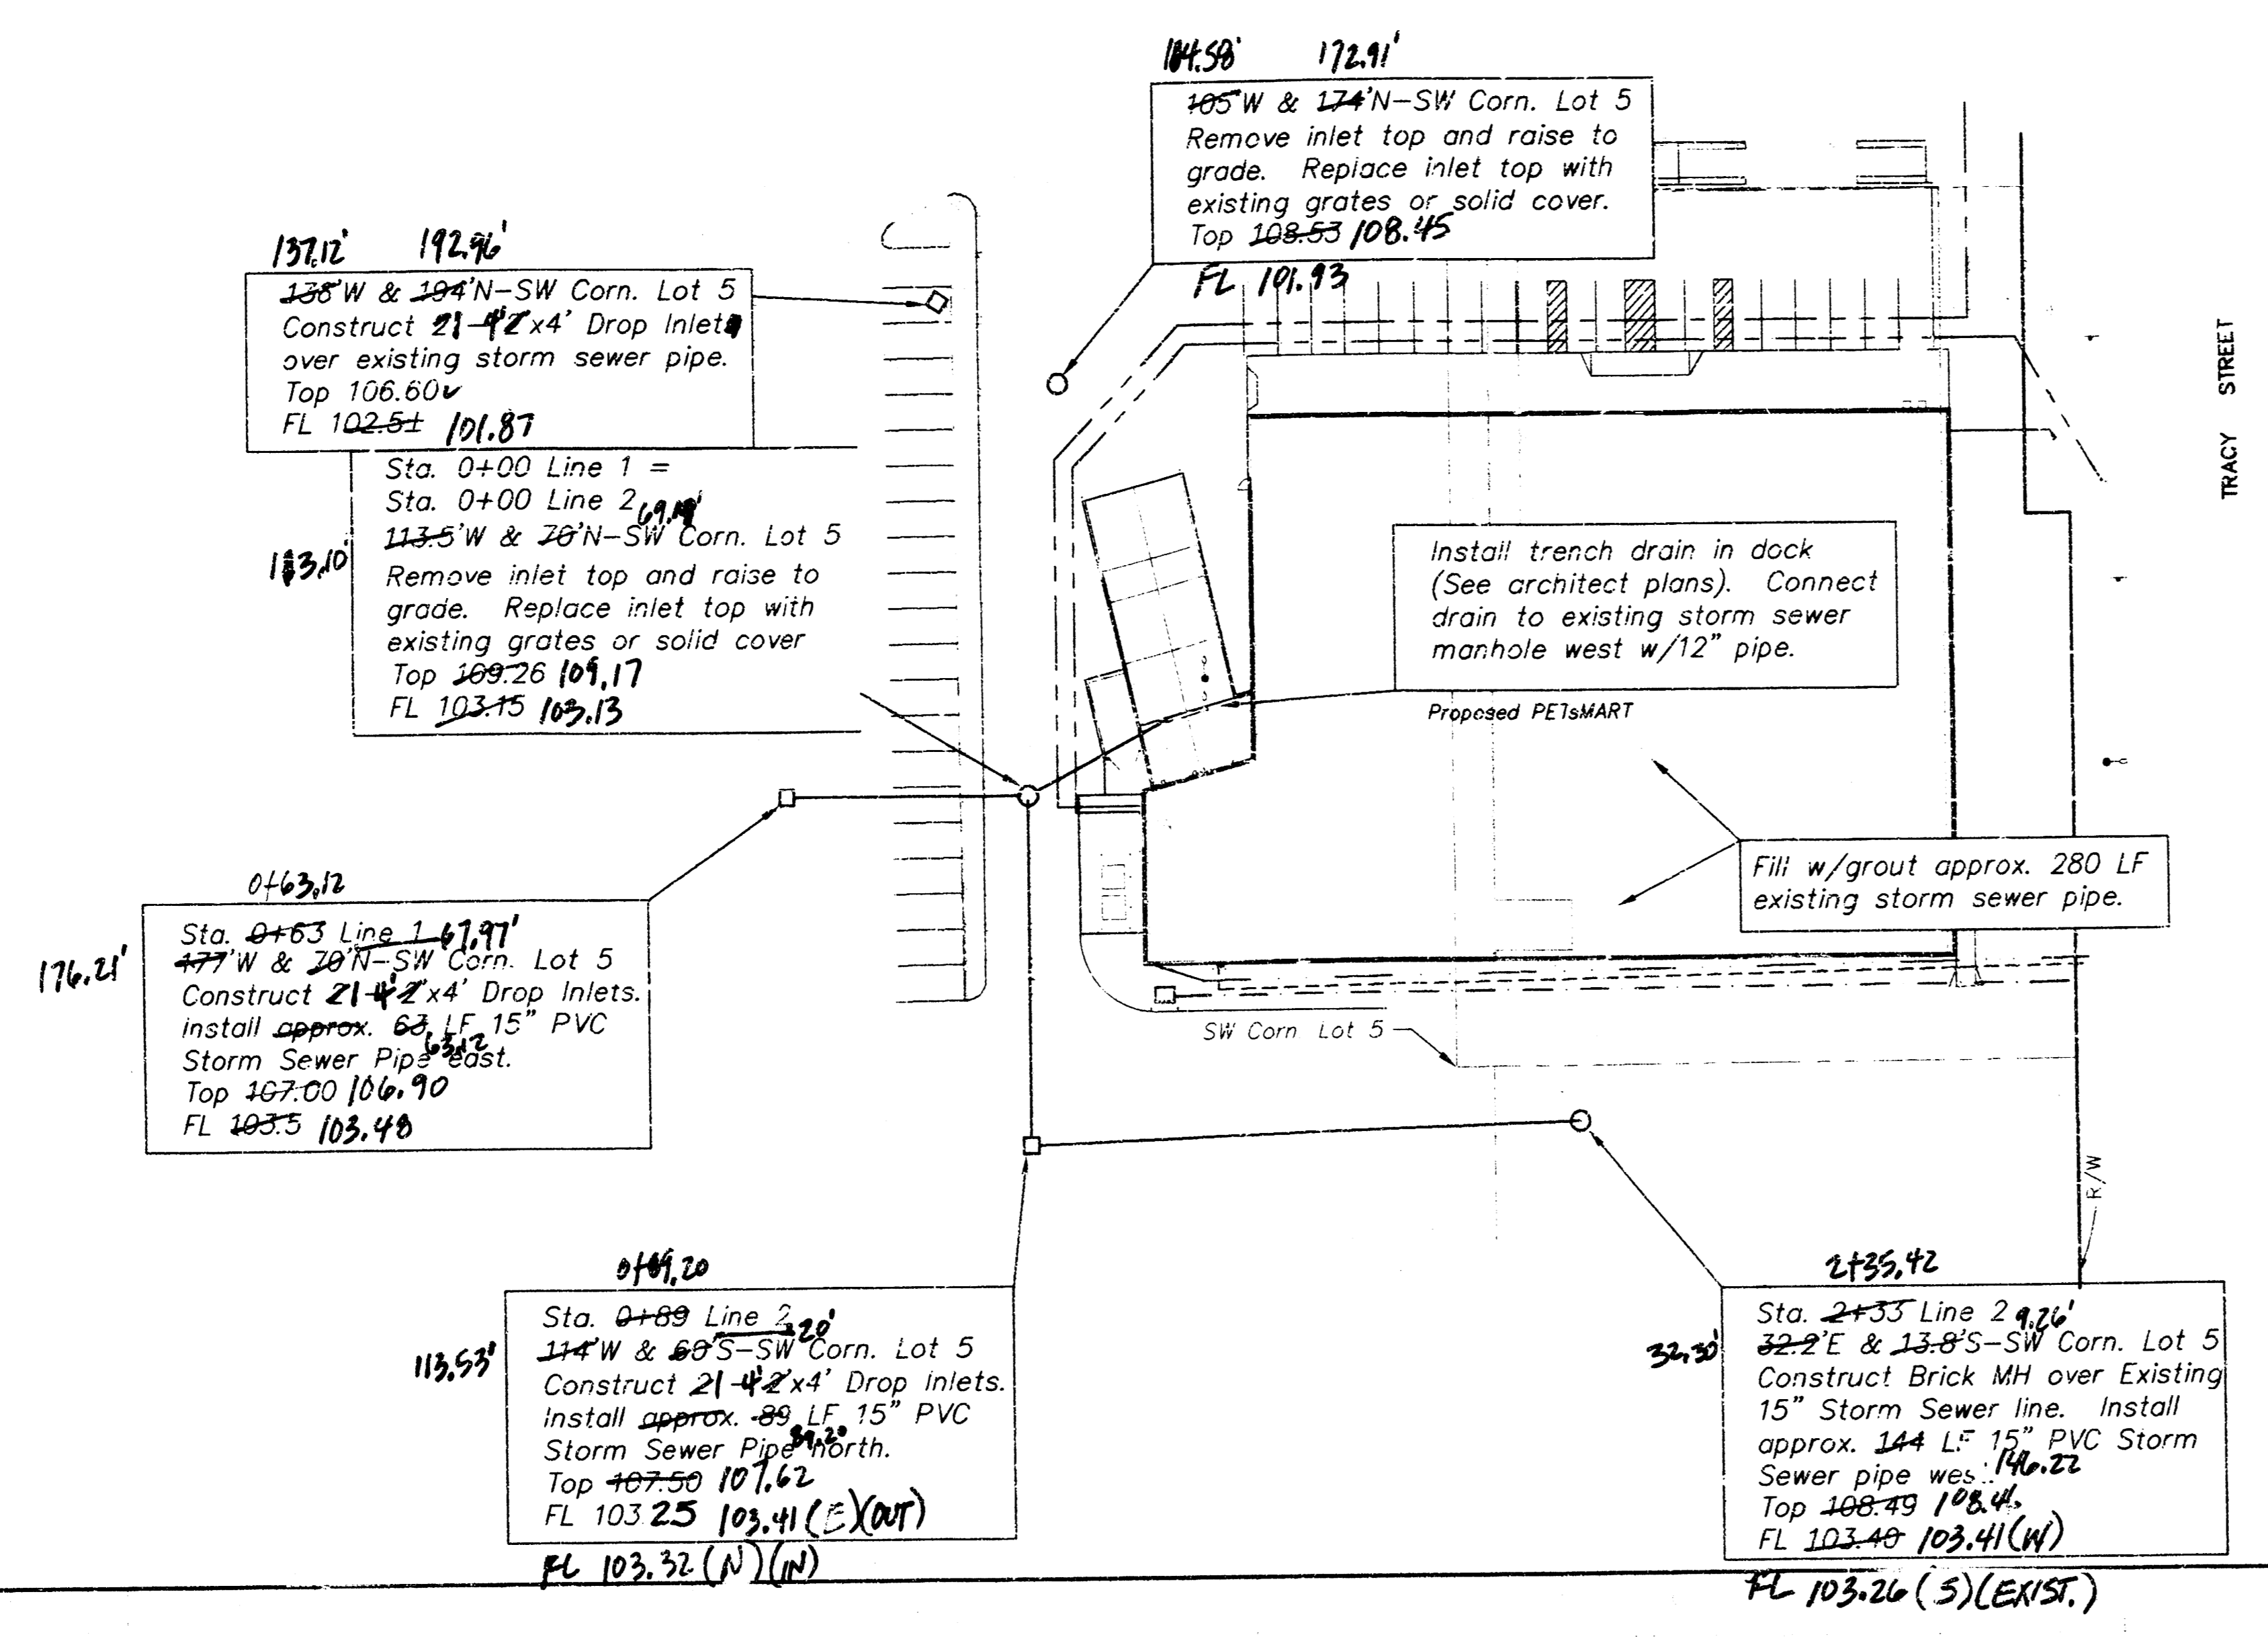 104.58' 172.91'
105'W & 174'N-SW Corn. Lot 5
Remove inlet top and raise to
grade. Replace inlet top with
existing grates or solid cover.
Top 108.53 108.45
FL 101.93
137.12' 192.96'
138'W & 194'N-SW Corn. Lot 5
Construct 21-4'2'x4' Drop Inlet
over existing storm sewer pipe.
Top 106.60✓
FL 102.5± 101.87
Sta. 0+00 Line 1 =
Sta. 0+00 Line 2
113.5'W & 70'N-SW Corn. Lot 5
113.10'
Remove inlet top and raise to
grade. Replace inlet top with
existing grates or solid cover
Top 109.26 109.17
FL 103.15 103.13
Install trench drain in dock
(See architect plans). Connect
drain to existing storm sewer
manhole west w/12" pipe.
Proposed PETsMART
TRACY STREET
Fill w/grout approx. 280 LF
existing storm sewer pipe.
0+63.12
Sta. 0+63 Line 1 67.97'
176.21' 177'W & 70'N-SW Corn. Lot 5
Construct 21-4'2'x4' Drop Inlets.
install approx. 63 LF 15" PVC
63.12
Storm Sewer Pipe east.
Top 107.00 106.90
FL 103.5 103.48
SW Corn Lot 5
R/W
0+89.20
Sta. 0+89 Line 2
.20'
113.53' 114'W & 60'S-SW Corn. Lot 5
Construct 21-4'2'x4' Drop Inlets.
Install approx. 89 LF 15" PVC
89.20
Storm Sewer Pipe north.
Top 107.50 107.62
FL 103.25 103.41 (E)(OUT)
FL 103.32 (N)(IN)
2+35.42
Sta. 2+33 Line 2 9.26'
32.30' 32.2'E & 13.8'S-SW Corn. Lot 5
Construct Brick MH over Existing
15" Storm Sewer line. Install
approx. 144 LF 15" PVC Storm
Sewer pipe wes. 146.22
Top 108.49 108.46
FL 103.40 103.41 (W)
FL 103.26 (S)(EXIST.)